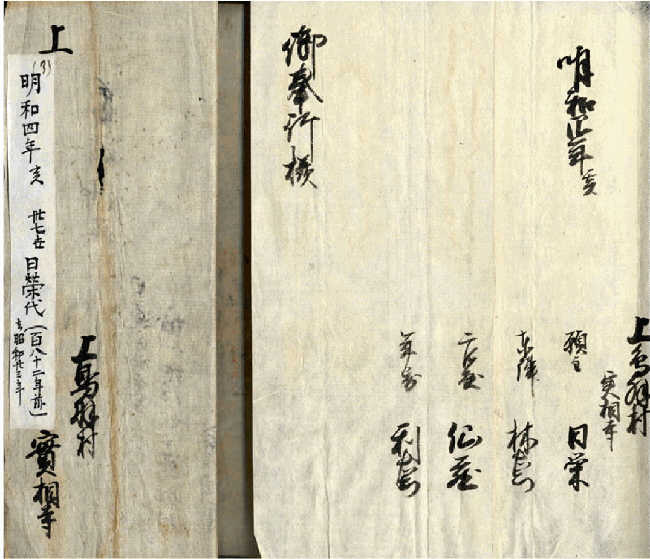 上鳥羽村
実相寺
願主 日栄
林右衛門
年寄 利右衛門
明和四年亥
御奉行様
上
上鳥羽村
實相寺
(3)
明和四年亥 廿七世 日榮代(百八十二年前)
去昭和廿三年